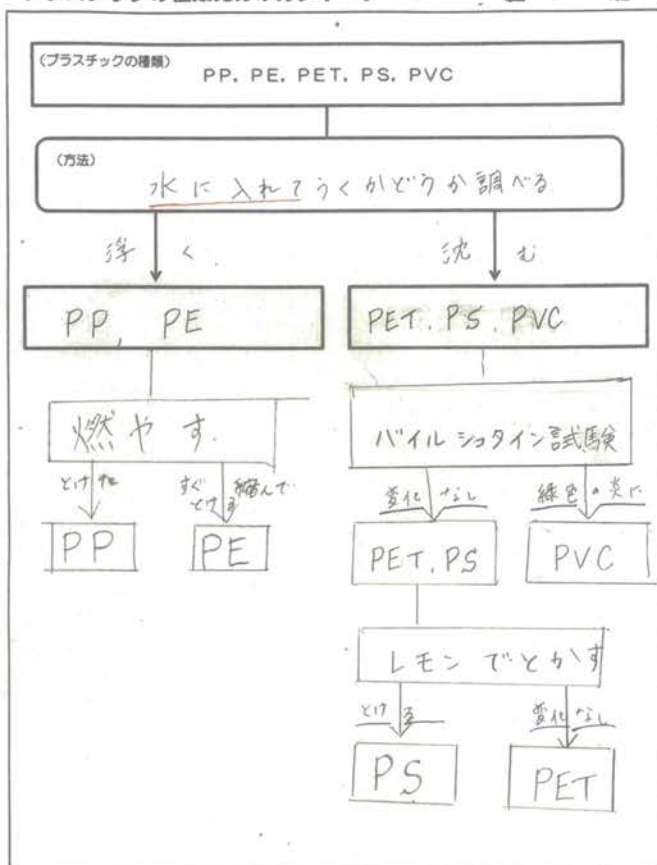 (プラスチックの種類)
PP, PE, PET, PS, PVC
(方法)
水に入れてうくかどうか調べる
浮く
沈む
PP, PE
PET. PS. PVC
燃やす.
バイルシュタイン試験
とけた
すぐ縮んで
とける
変化なし
緑色の炎に
PP
PE
PET. PS
PVC
レモンでとかす
とける
変化なし
PS
PET